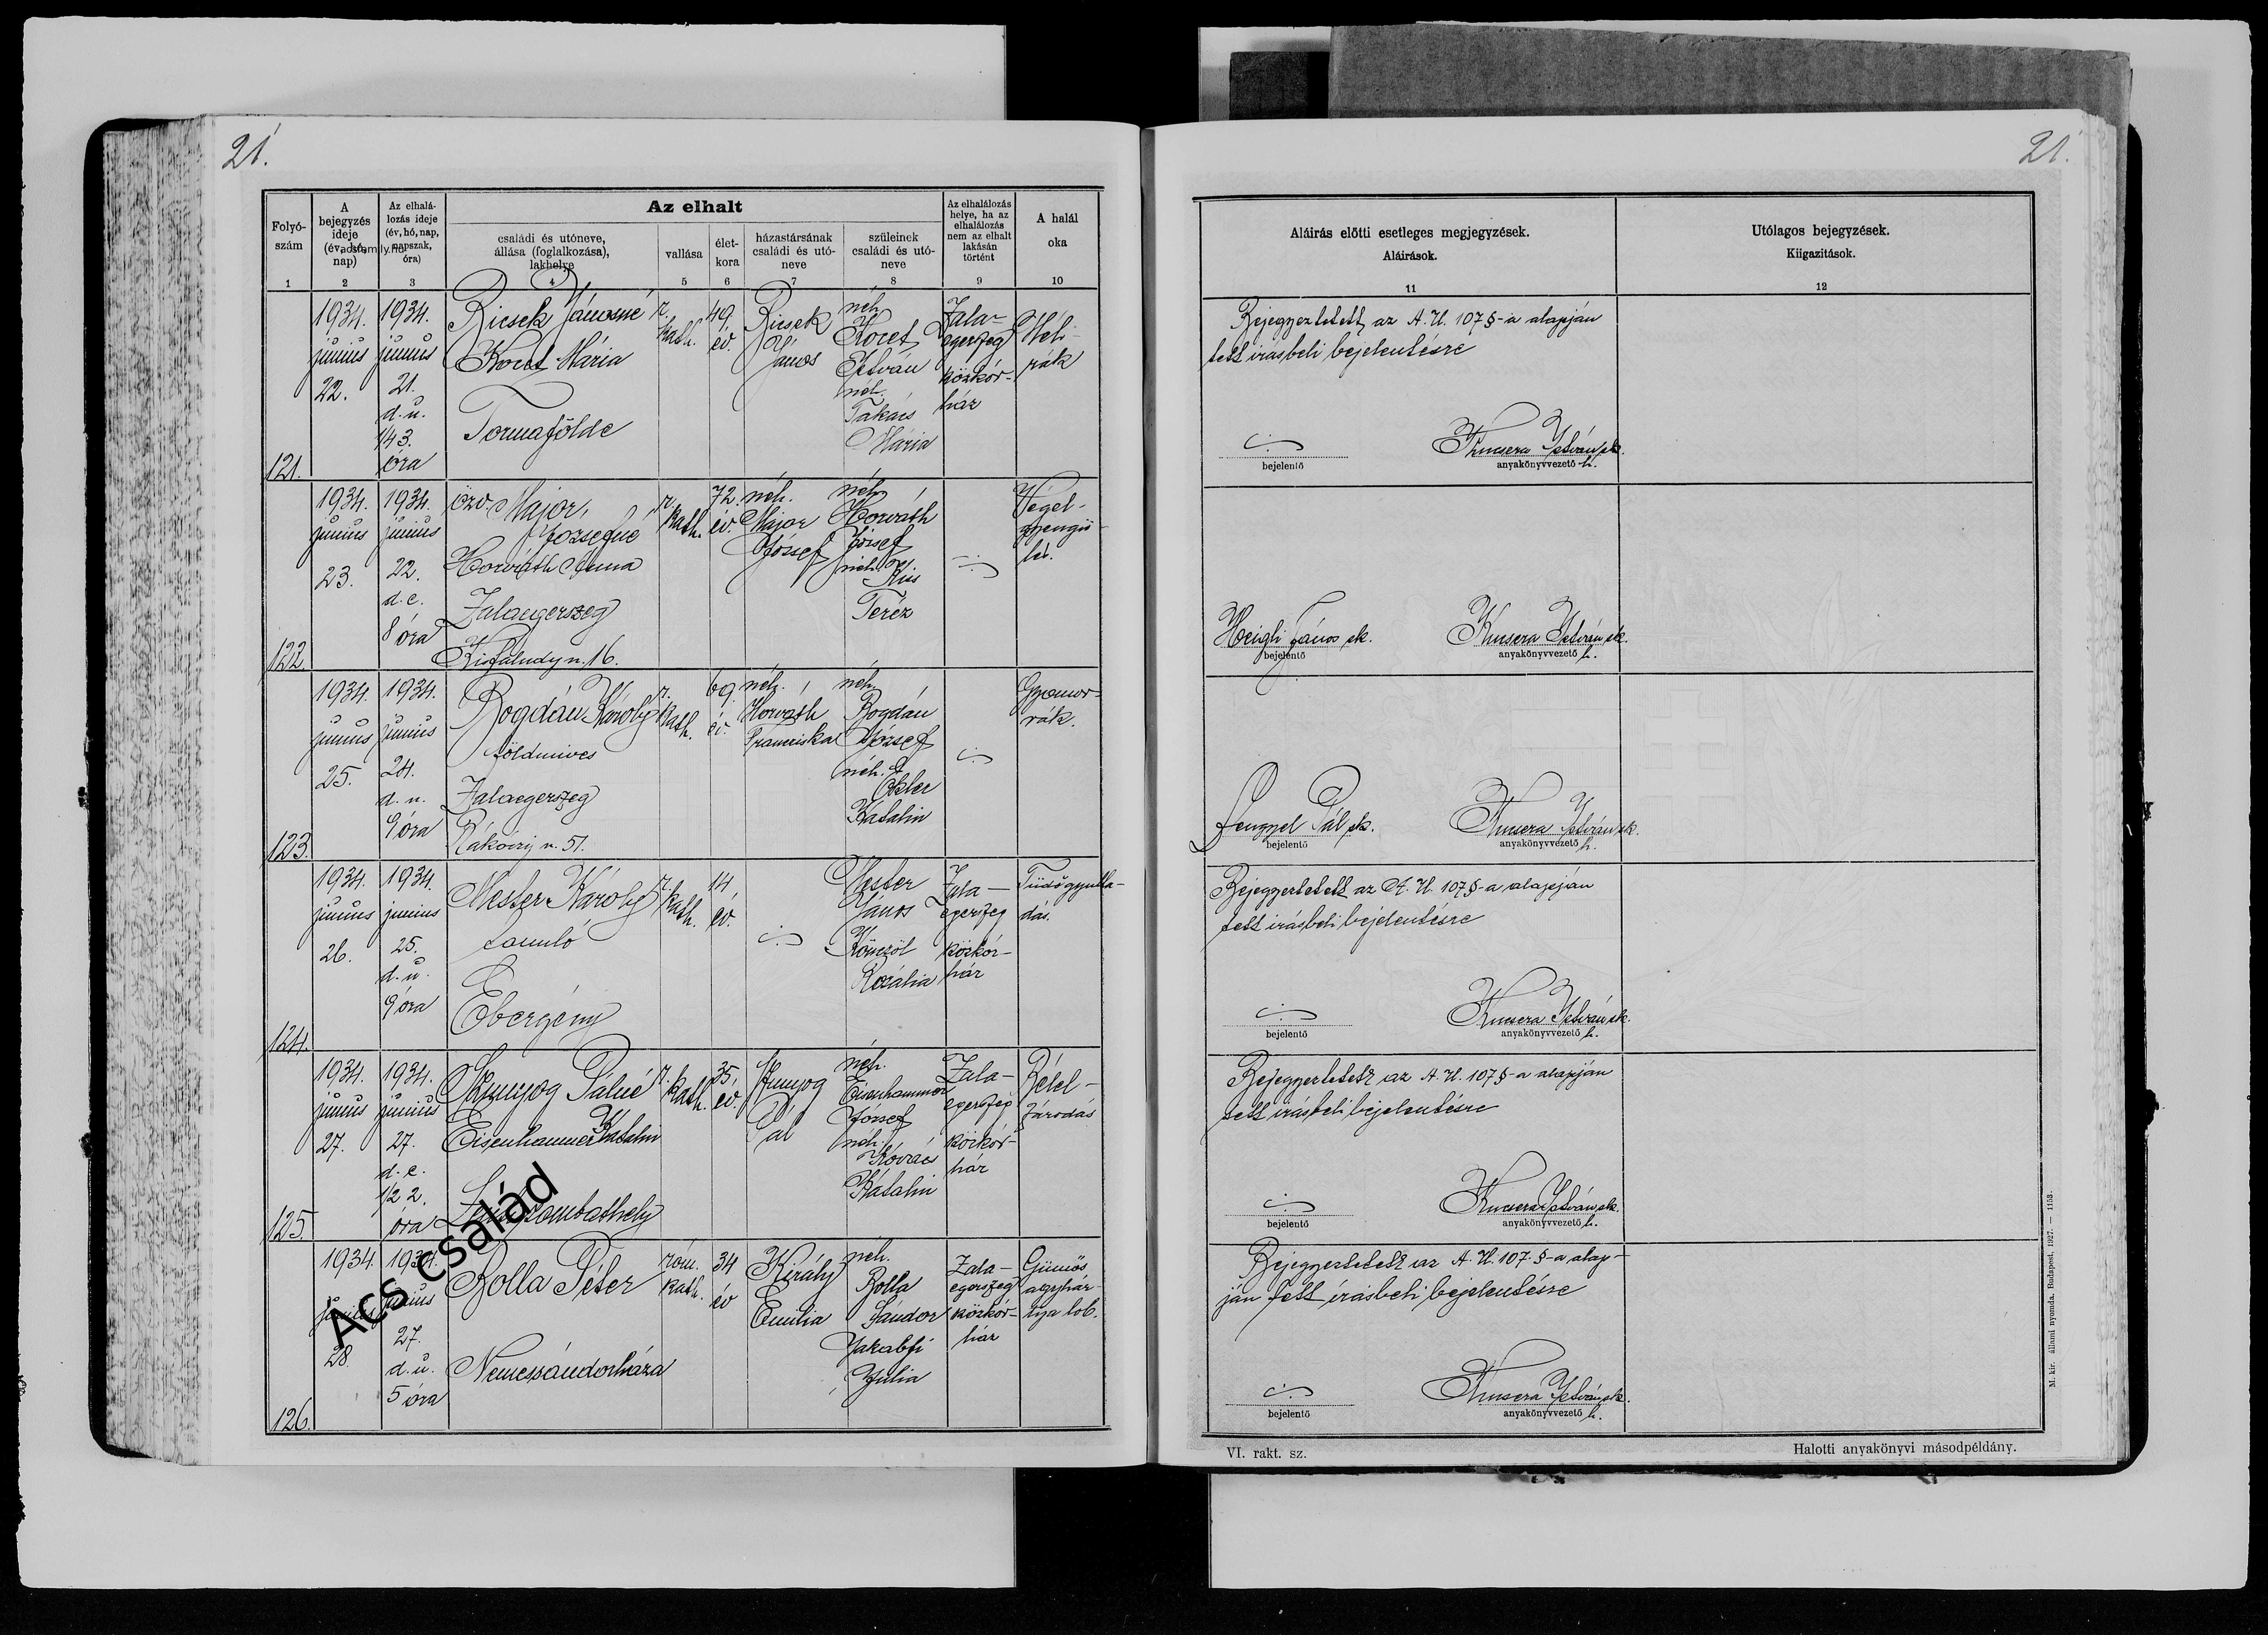 21.
21.
Folyó-
szám
A
bejegyzés
ideje
(év, hó,
nap)
Az elhalá-
lozás ideje
(év, hó, nap,
napszak,
óra)
Az elhalt
családi és utóneve,
állása (foglalkozása),
lakhelye
vallása
élet-
kora
házastársának
családi és utó-
neve
szüleinek
családi és utó-
neve
Az elhalálozás
helye, ha az
elhalálozás
nem az elhalt
lakásán
történt
A halál
oka
1 2 3 4 5 6 7 8 9 10
121.
1934.
junius
22.
1934.
junius
21.
d. u.
1/4 3.
óra
Ricsek Jánosné
Kocet Mária
Tormafölde
r.
kath.
49
év.
Ricsek
János
néh.
Kocet
István
néh.
Takács
Mária
Zala-
egerszeg
közkór-
ház
Méh-
rák
122.
1934.
junius
23.
1934.
junius
22.
d. e.
8 óra
özv. Major
Józsefné
Horváth Anna
Zalaegerszeg
Kisfaludy u. 16.
r.
kath.
72.
év.
néh.
Major
József
néh.
Horváth
József
néh.
Kis
Teréz
Végel-
gyengü-
lés.
123.
1934.
junius
25.
1934.
junius
24.
d. u.
9 óra
Bogdán Károly
földmives
Zalaegerszeg
Rákóczy u. 51.
r.
kath.
69
év.
néh.
Horváth
Franciska
néh.
Bogdán
József
néh.
Ekler
Katalin
Gyomor-
rák.
124.
1934.
junius
26.
1934.
junius
25.
d. u.
9 óra
Mester Károly
tanuló
Ebergény
r.
kath.
14
év.
Mester
János
Kömzöl
Rozália
Zala-
egerszeg
közkór-
ház
Tüdőgyulla-
dás.
125.
1934.
junius
27.
1934.
junius
27.
d. e.
1/2 2.
óra
Kunyog Pálné
Eisenhammer Katalin
Lentiszombathely
r.
kath.
35.
év.
Kunyog
Pál
néh.
Eisenhammer
József
néh.
Kovács
Katalin
Zala-
egerszeg
közkór-
ház
Bélel-
záródás
126.
1934.
junius
28.
1934.
junius
27.
d. u.
5 óra
Bolla Péter
Nemessándorháza
róm.
kath.
34
év
Király
Emilia
néh.
Bolla
Sándor
Jakabfi
Julia
Zala-
egerszeg
közkór-
ház
Gümős
agyhár-
tya lob.
acsfamily.hu
Ács család
Aláirás előtti esetleges megjegyzések.
Aláirások.
11
Utólagos bejegyzések.
Kiigazitások.
12
Bejegyeztetett az A. U. 107 §-a alapján
tett irásbeli bejelentésre
Kucsera István sk.
bejelentő
anyakönyvvezető h.
Heigli János sk.
Kucsera István sk.
bejelentő
anyakönyvvezető h.
Lengyel Pál sk.
Kucsera István sk.
bejelentő
anyakönyvvezető h.
Bejegyeztetett az A. U. 107 §-a alapján
tett irásbeli bejelentésre
Kucsera István sk.
bejelentő
anyakönyvvezető h.
Bejegyeztetett az A. U. 107 §-a alapján
tett irásbeli bejelentésre
Kucsera István sk.
bejelentő
anyakönyvvezető h.
Bejegyeztetett az A. U. 107. §-a alap-
ján tett irásbeli bejelentésre
Kucsera István sk.
bejelentő
anyakönyvvezető h.
VI. rakt. sz.
Halotti anyakönyvi másodpéldány.
M. kir. állami nyomda. Budapest, 1927. — 1153.